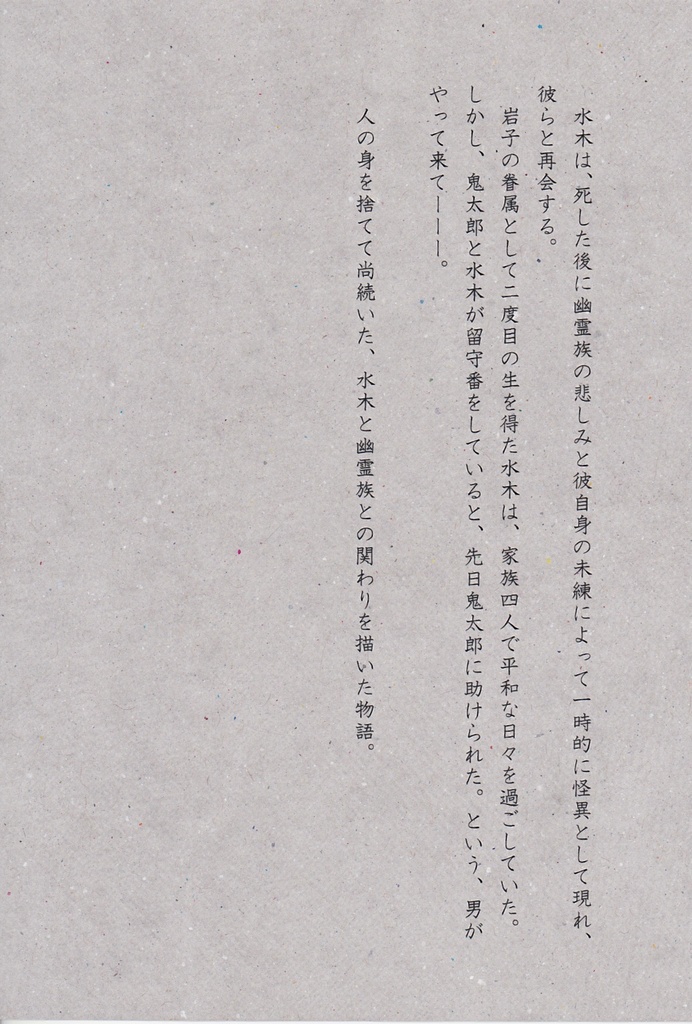 水木は、死した後に幽霊族の悲しみと彼自身の未練によって一時的に怪異として現れ、
彼らと再会する。
岩子の眷属として二度目の生を得た水木は、家族四人で平和な日々を過ごしていた。
しかし、鬼太郎と水木が留守番をしていると、先日鬼太郎に助けられた。という、男が
やって来てーーー。
人の身を捨てて尚続いた、水木と幽霊族との関わりを描いた物語。